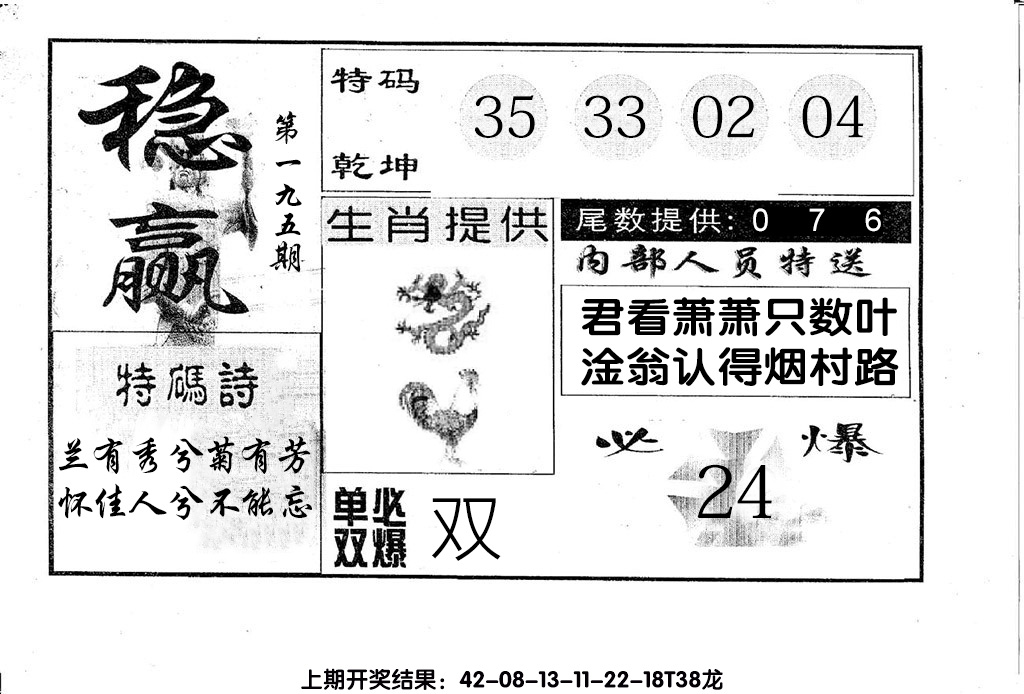 稳赢
第一九五期
特码
乾坤
35 33 02 04
生肖提供
尾数提供: 0 7 6
内部人员特送
君看萧萧只数叶
淦翁认得烟村路
特碼詩
兰有秀兮菊有芳
怀佳人兮不能忘
必爆
24
单双必爆
双
上期开奖结果：42-08-13-11-22-18T38龙